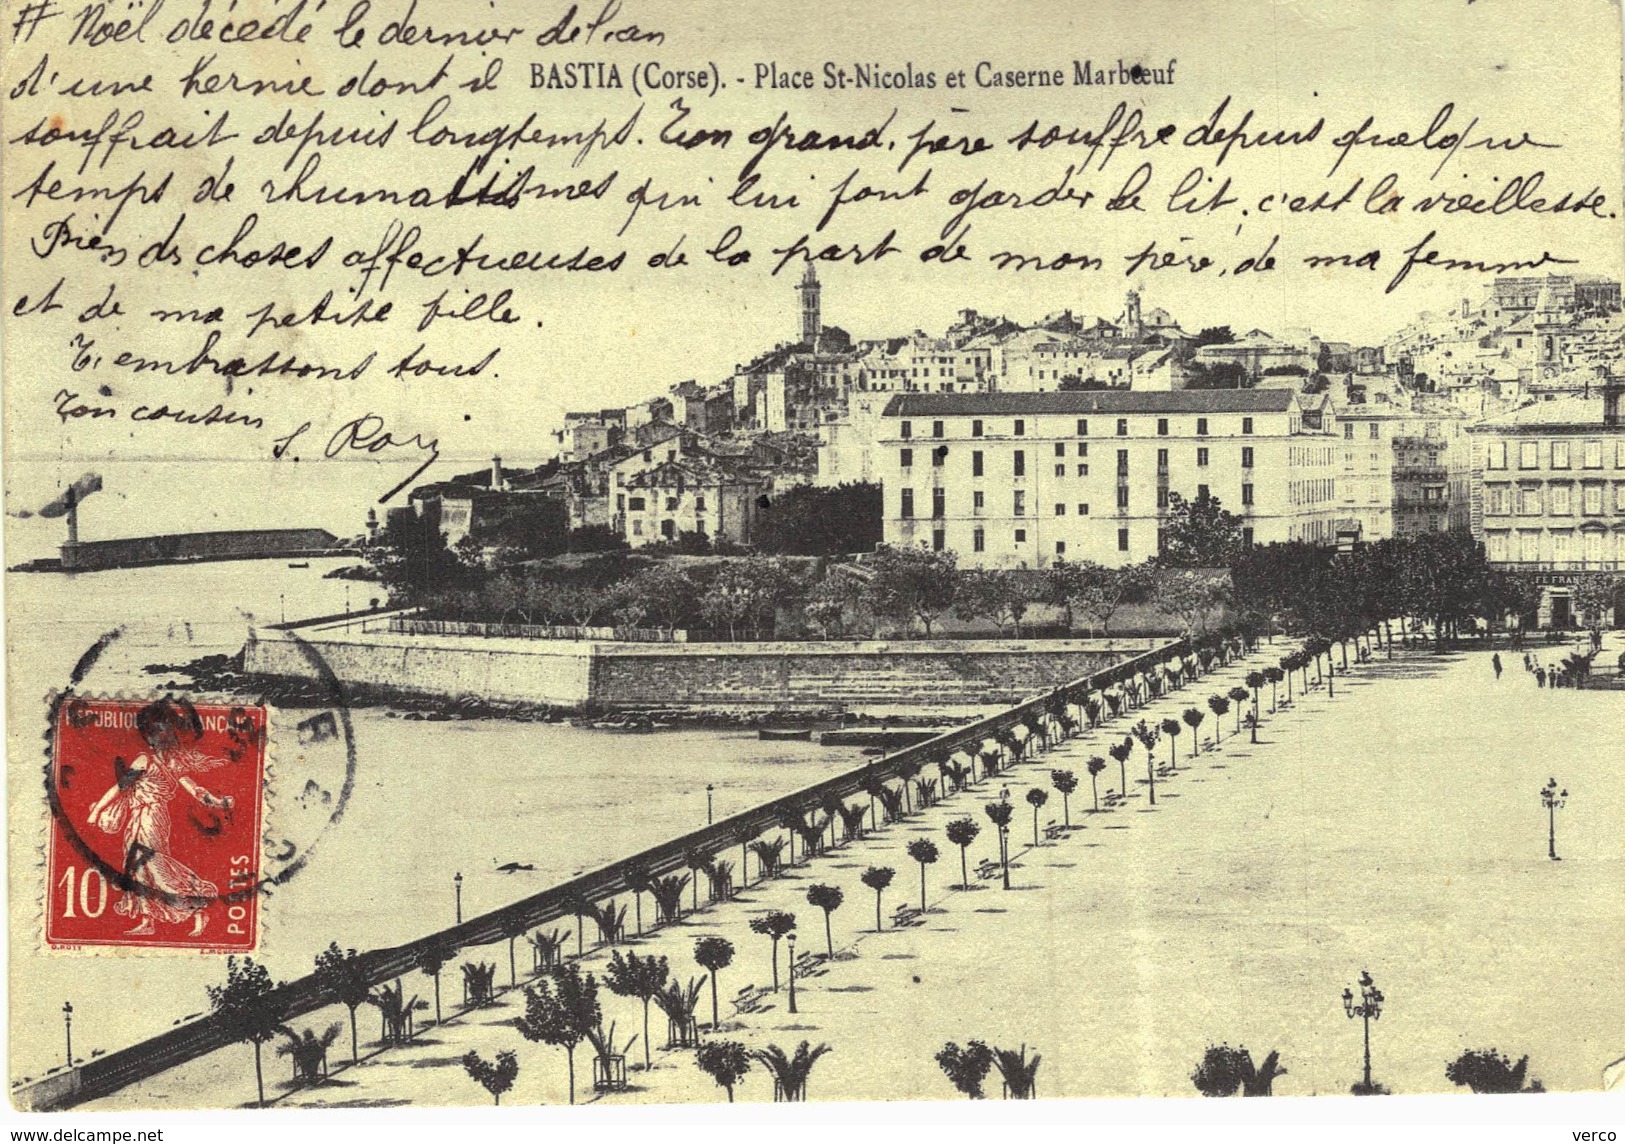 # Noël décédé le dernier de l'an
d'une hernie dont il
BASTIA (Corse). - Place St-Nicolas et Caserne Marbœuf
souffrait depuis longtemps. Ton grand, père souffre depuis quelque
temps de rhumatismes qui lui font garder le lit. c'est la vieillesse.
Bien des choses affectueuses de la part de mon père, de ma femme
et de ma petite fille.
T, embrassons tous.
Ton cousin
FÉ FRAN
RÉPUBLIQUE FRANÇAISE
10
POSTES
O. ROTY
delcampe.net
verco